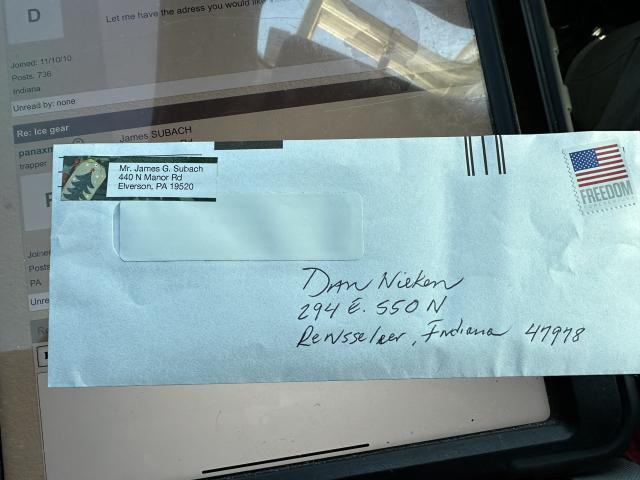 D
Let me have the adress you would like
Joined: 11/10/10
Posts: 736
Indiana
Unread by: none
Re: Ice gear
James SUBACH
trapper
PA
Mr. James G. Subach
440 N Manor Rd
Elverson, PA 19520
FREEDOM
Dan Nieken
294 E. 550 N
Rensselaer, Indiana 47978